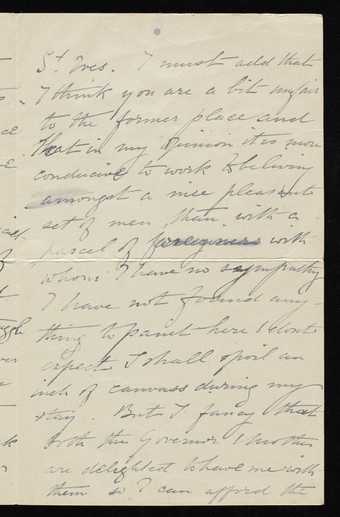 St. Ives. I must add that
I think you are a bit unfair
to the former place and
that in my opinion it is more
conducive to work to be living
amongst a nice pleasant
set of men than with a
parcel of foreigners with
whom I have no sympathy
I have not found any-
thing to paint here & dont
expect I shall spoil an
inch of canvass during my
stay. But I fancy that
both the Governor & mother
are delighted to have me with
them so I can afford the